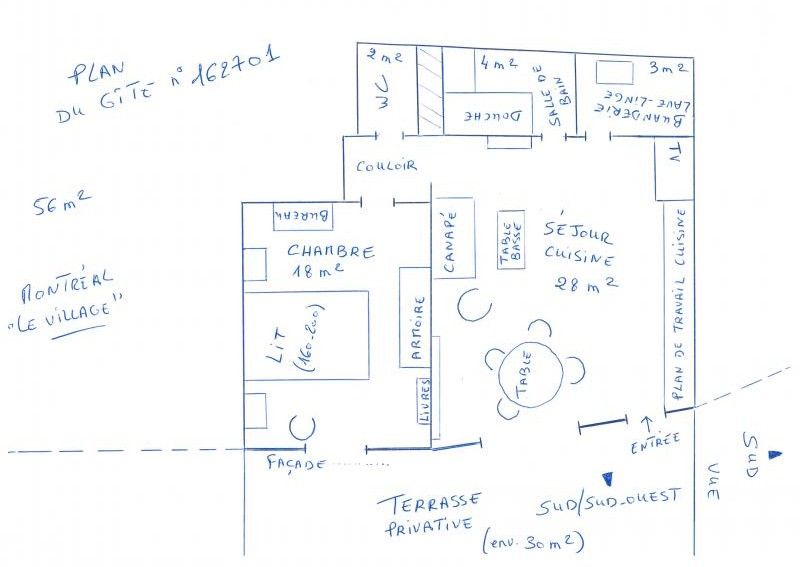 PLAN
DU GÎTE n° 162701
56 m²
MONTRÉAL
"LE VILLAGE"
2 m²
WC
4 m²
DOUCHE
SALLE DE
BAIN
3 m²
BUANDERIE
LAVE-LINGE
TV
COULOIR
BUREAU
CHAMBRE
18 m²
LIT
(160-200)
ARMOIRE
LIVRES
CANAPÉ
TABLE
BASSE
SÉJOUR
CUISINE
28 m²
TABLE
PLAN DE TRAVAIL CUISINE
ENTRÉE
FAÇADE ..........
TERRASSE
PRIVATIVE
(env. 30 m²)
SUD/SUD-OUEST
VUE
SUD